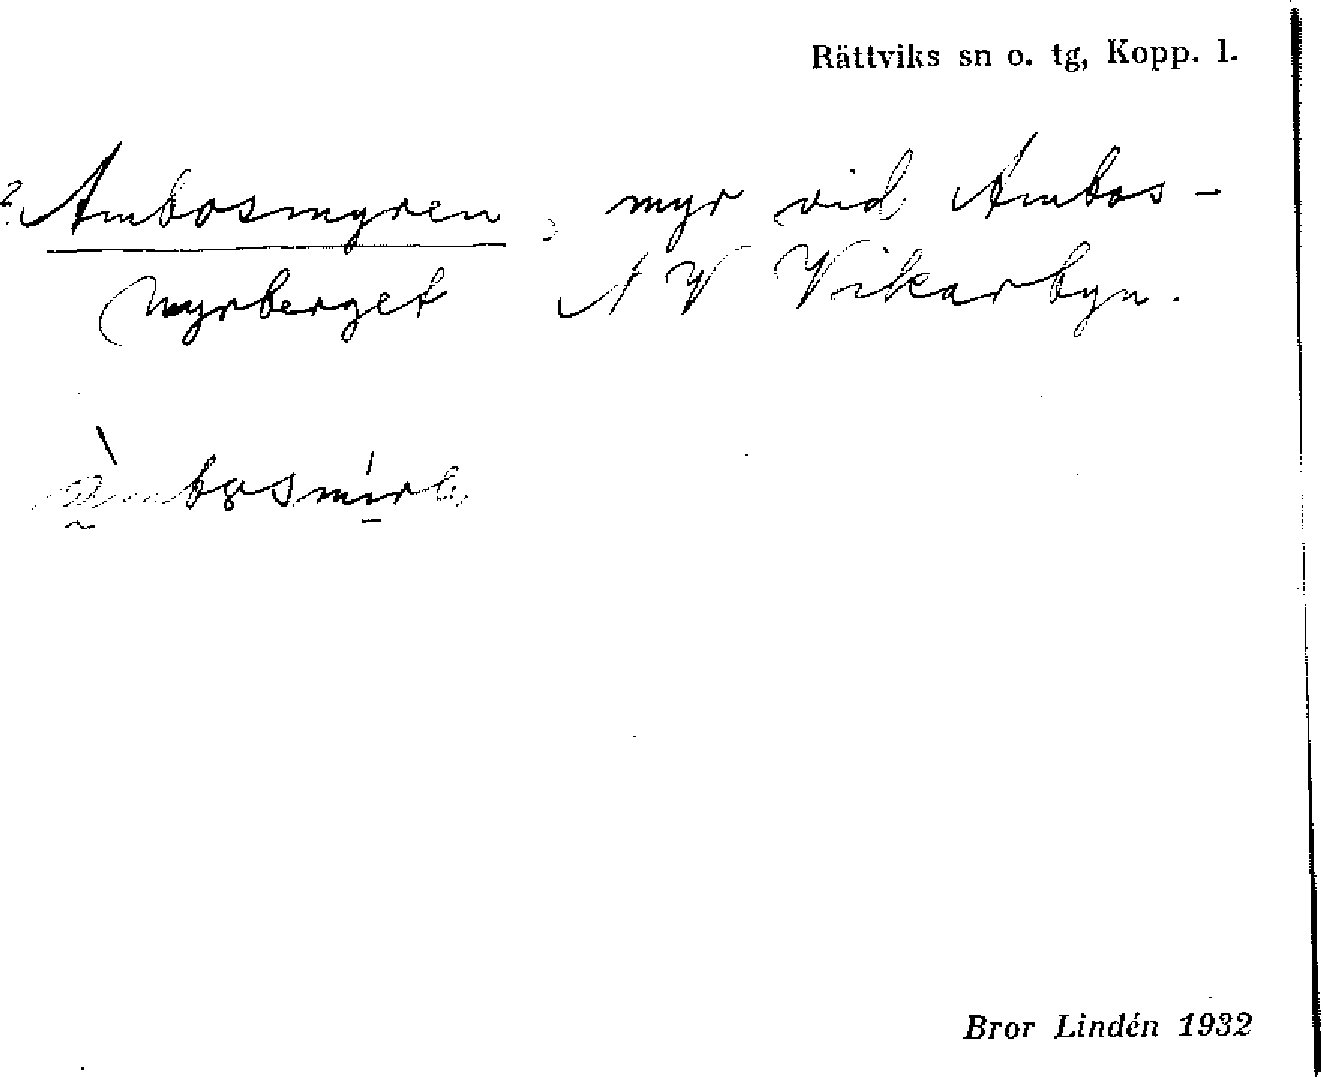 Rättviks sn o. tg, Kopp. l.
? Ambosmyren, myr vid Ambos-
myrberget NV Vikarbyn.
Bror Lindén 1932